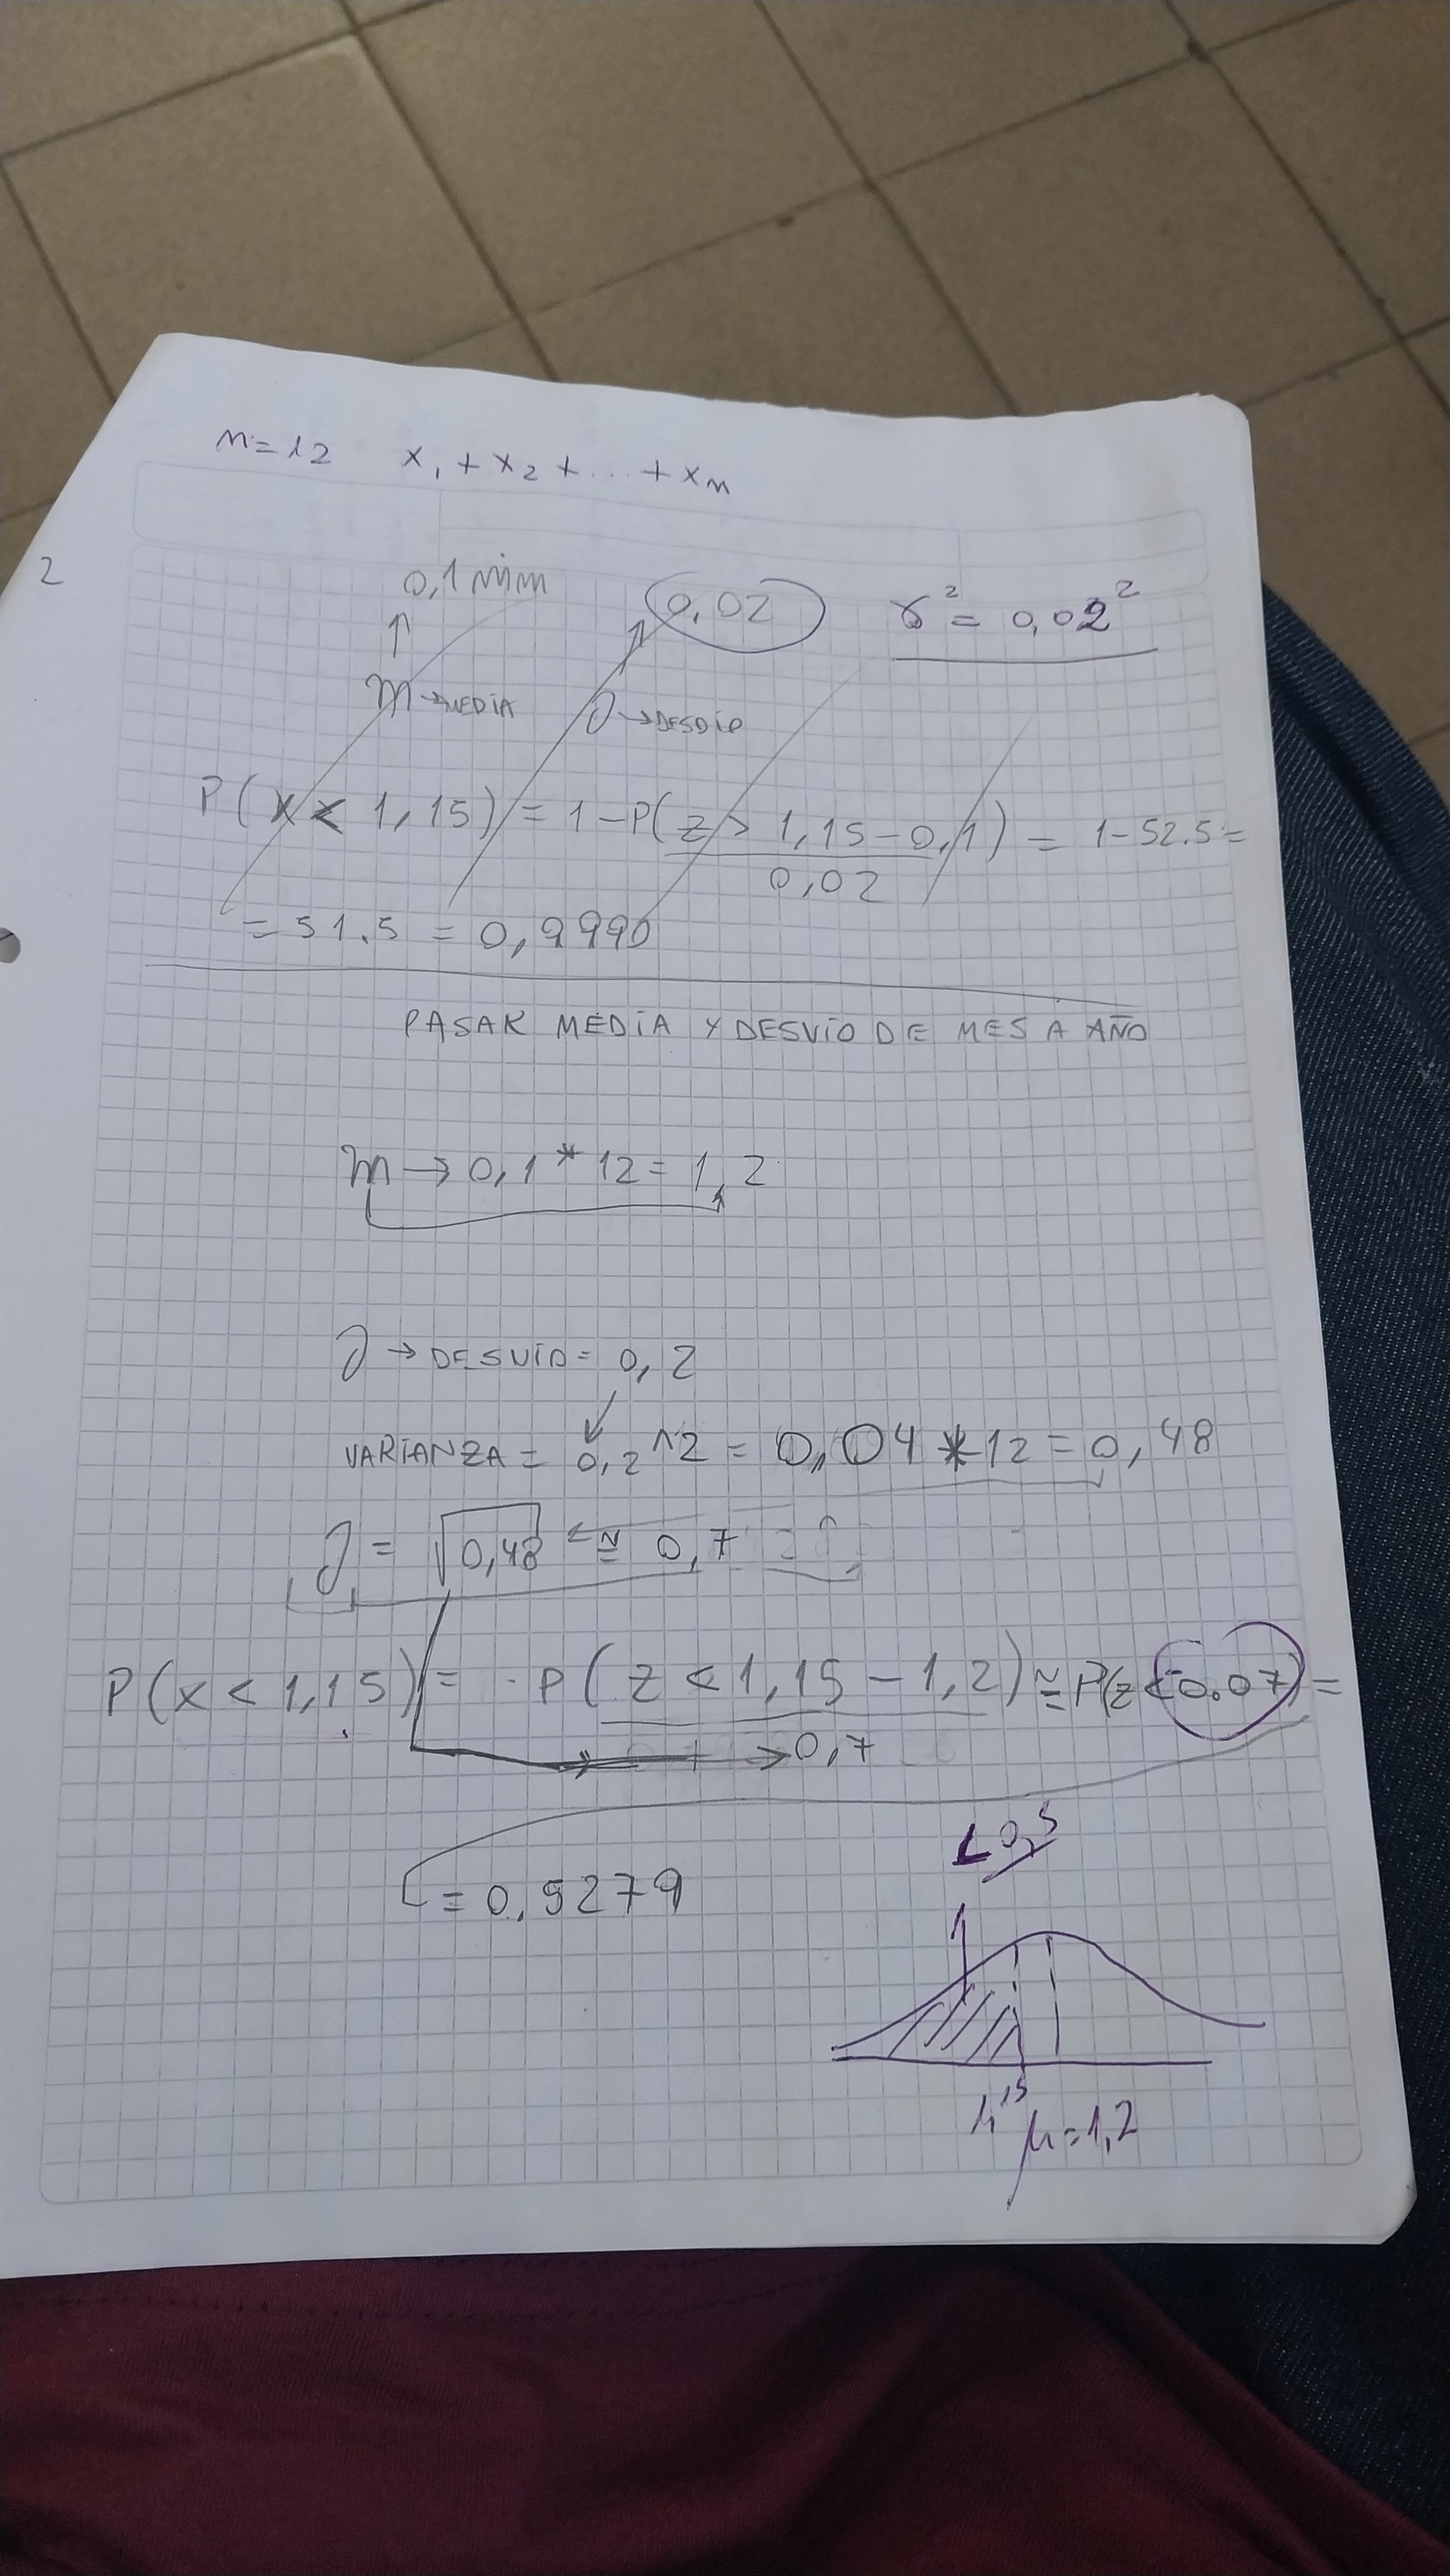 n=12 x₁ + x₂ + ... + xₙ
2
0,1 mm
0,02 σ² = 0,02²
m → MEDIA
σ → DESVIO
P(x < 1,15) = 1-P(z > 1,15-0,1) = 1-52.5=
0,02
= 51.5 = 0,9990
PASAR MEDIA Y DESVIO DE MES A AÑO
m → 0,1 * 12 = 1,2
σ → DESVIO = 0,2
VARIANZA = 0,2^2 = 0,04 * 12 = 0,48
σ = √0,48 ≅ 0,7
P(x < 1,15) = P(z < 1,15 - 1,2) ≅ P(z < -0.07) =
0,7
< 0,5
= 0,5279
1,15
μ=1,2